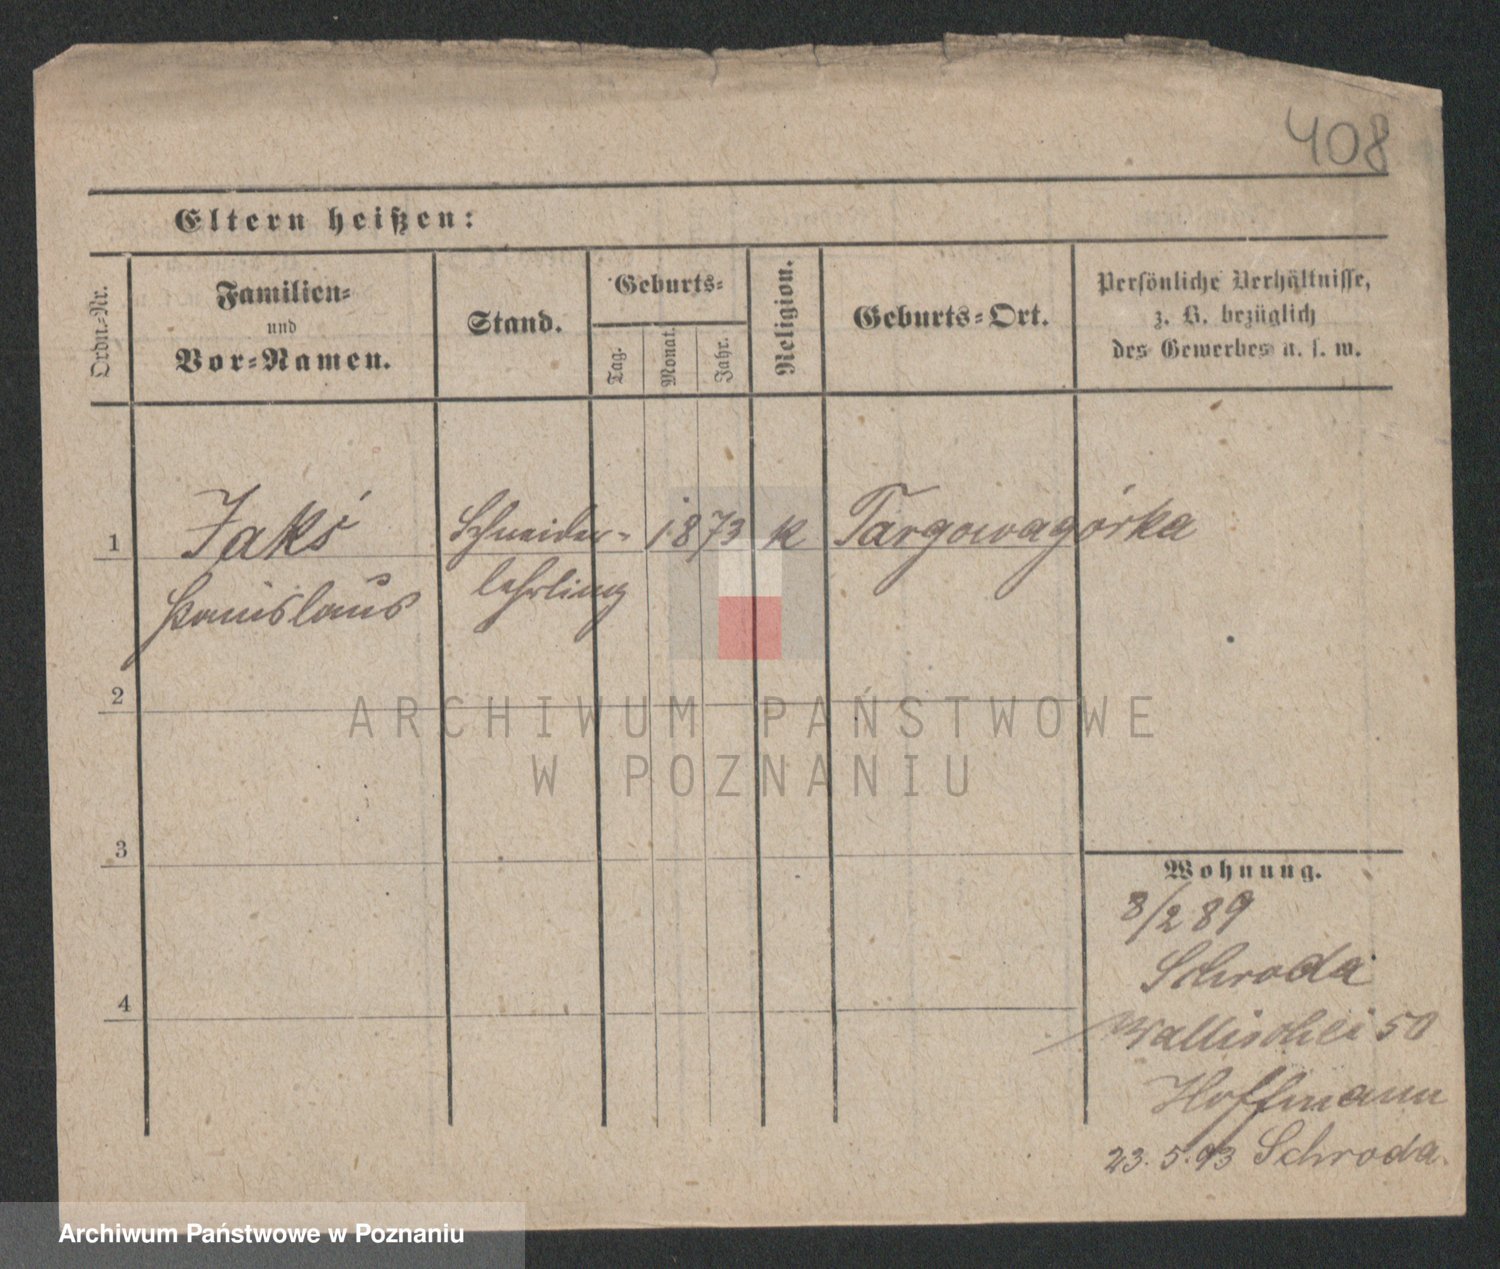 408
Eltern heißen:
Ordn.-Nr.
Familien-
und
Vor-Namen.
Stand.
Geburts-
Tag.
Monat.
Jahr.
Religion.
Geburts-Ort.
Persönliche Verhältnisse,
z. B. bezüglich
des Gewerbes u. s. w.
1
Jakś
Stanislaus
Schneider-
lehrling
1873
K
Targowagórka
2
3
4
Wohnung.
8/2 89
Schroda
Wallischei 50
Hoffmann
23. 5. 93 Schroda.
ARCHIWUM PAŃSTWOWE
W POZNANIU
Archiwum Państwowe w Poznaniu